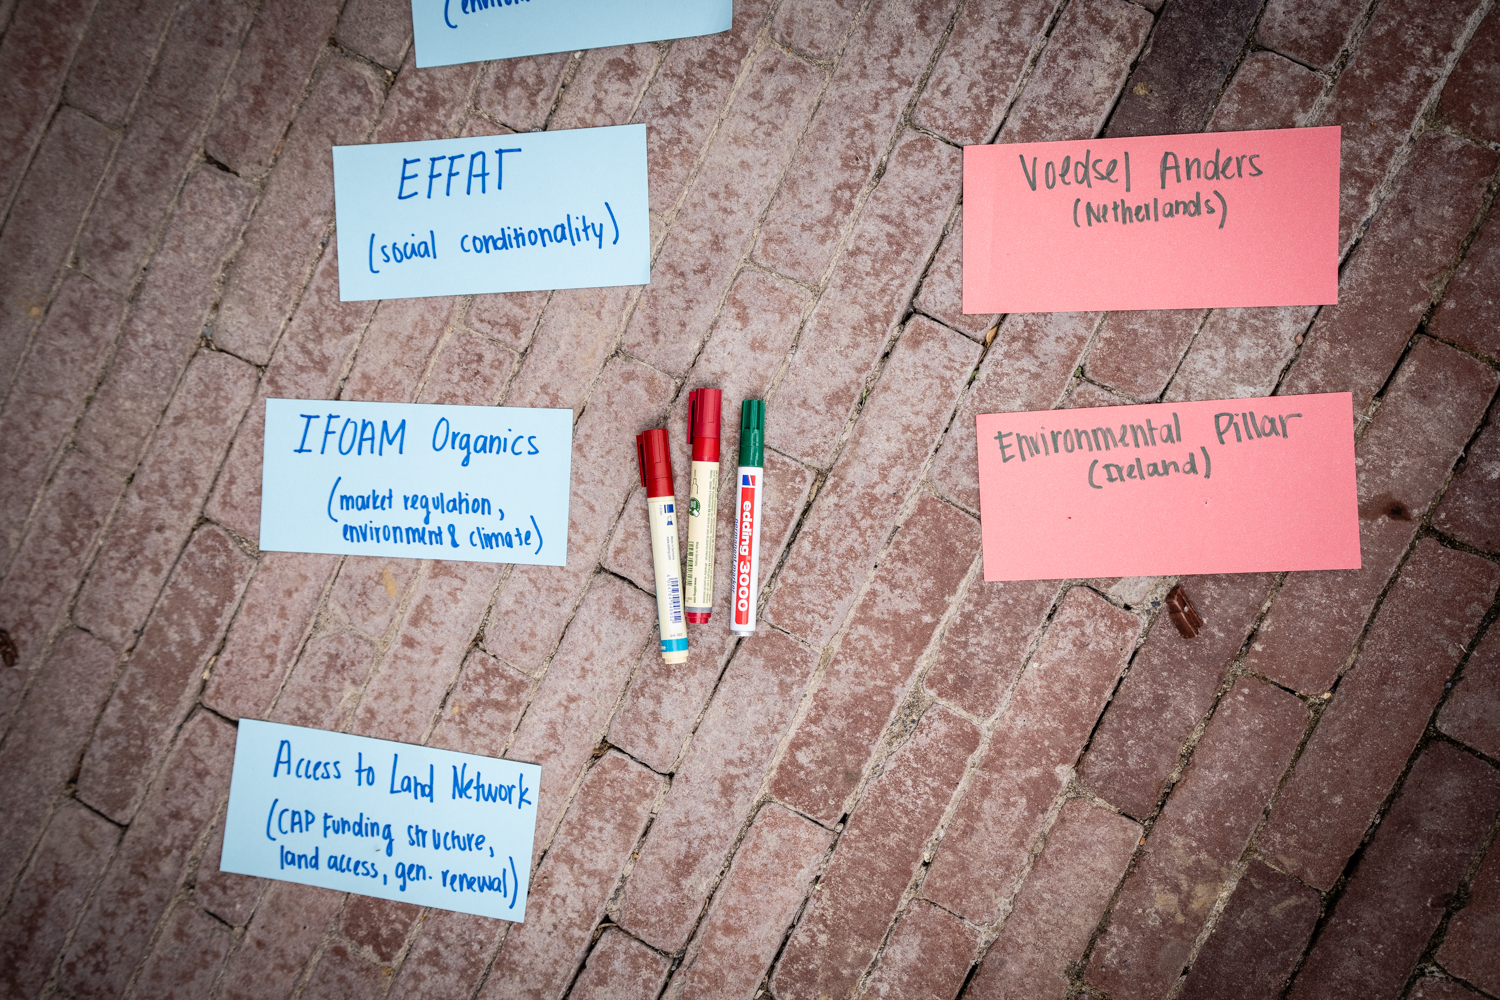 EFFAT
(social conditionality)
IFOAM Organics
(market regulation,
environment & climate)
Access to Land Network
(CAP Funding structure,
land access, gen. renewal)
edding 3000
permanent marker
Voedsel Anders
(Netherlands)
Environmental Pillar
(Ireland)